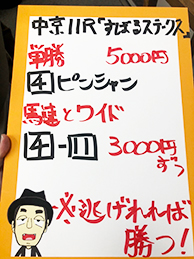 中京11R「すばるステークス」
単勝 5000円
④ピンシャン
馬連とワイド
④-⑪ 3000円
ずつ
※逃げれれば
勝つ!